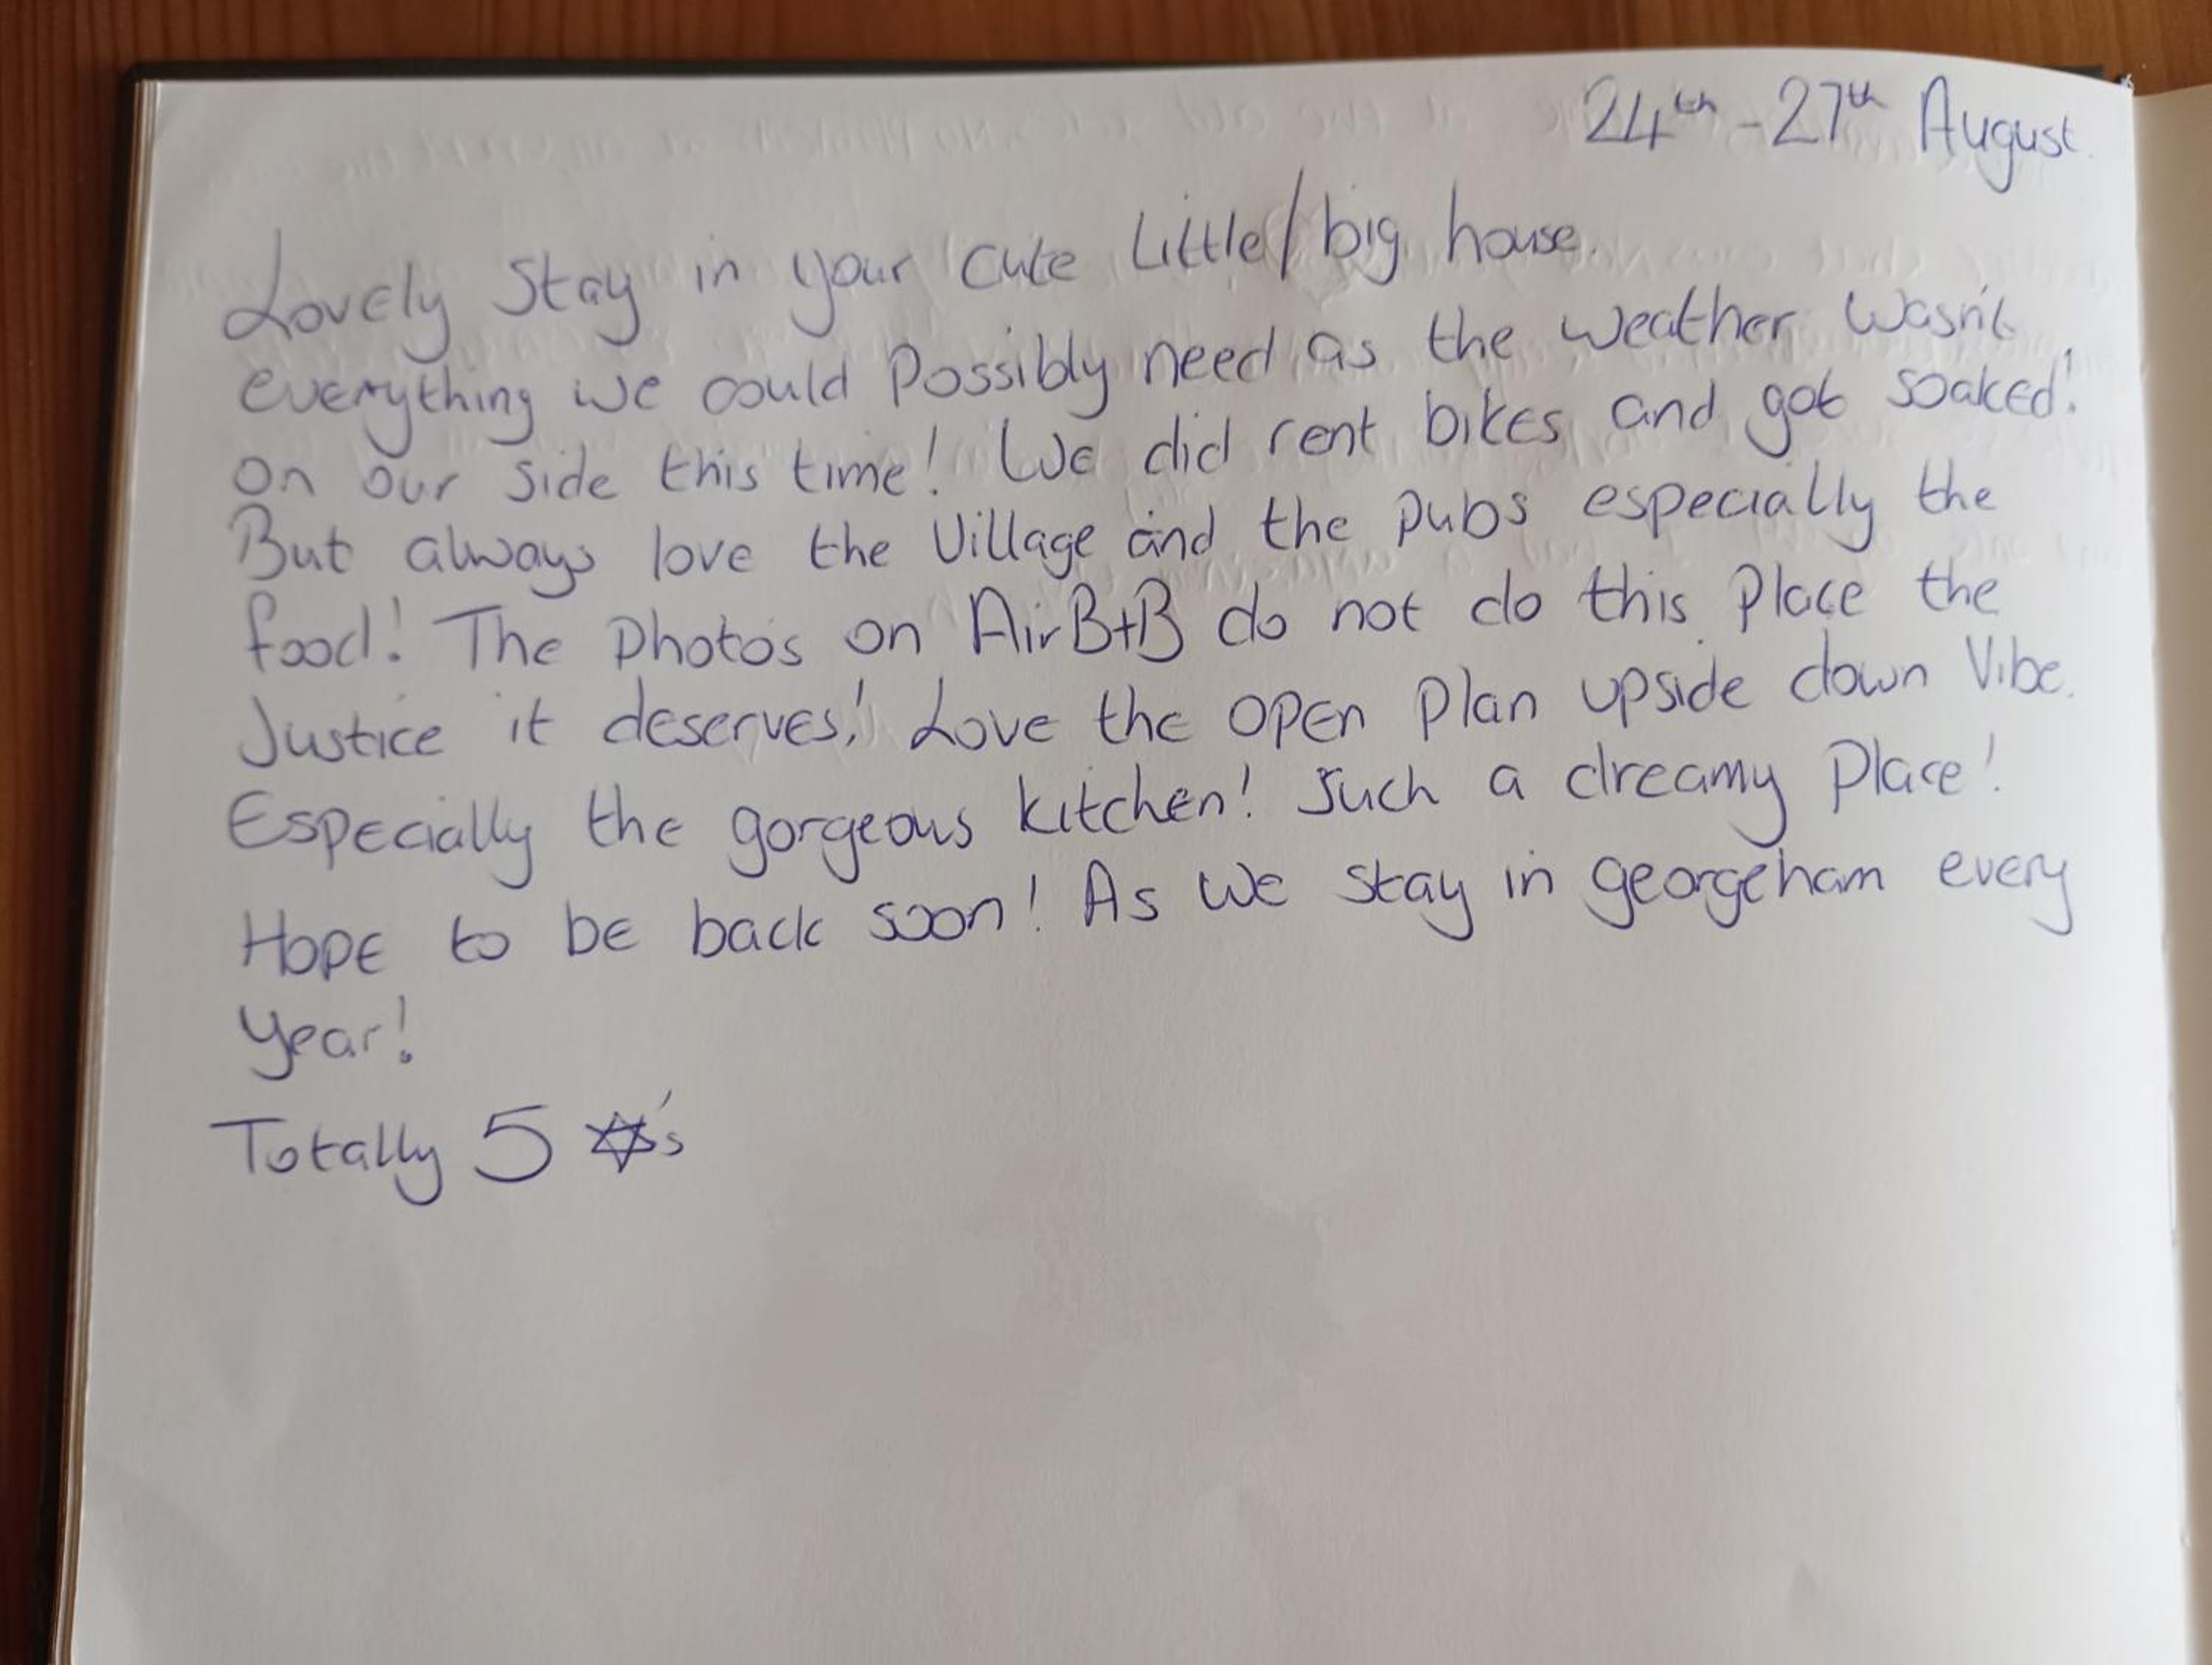 24th - 27th August.
Lovely Stay in your cute little/big house.
everything we could possibly need as the weather wasn't
on our side this time! We did rent bikes and got soaked!
But always love the village and the pubs especially the
food! The photo's on AirB+B do not do this place the
Justice it deserves! Love the open plan upside down vibe.
Especially the gorgeous kitchen! Such a dreamy place!
Hope to be back soon! As we stay in georgeham every
year!
Totally 5 ✡'s